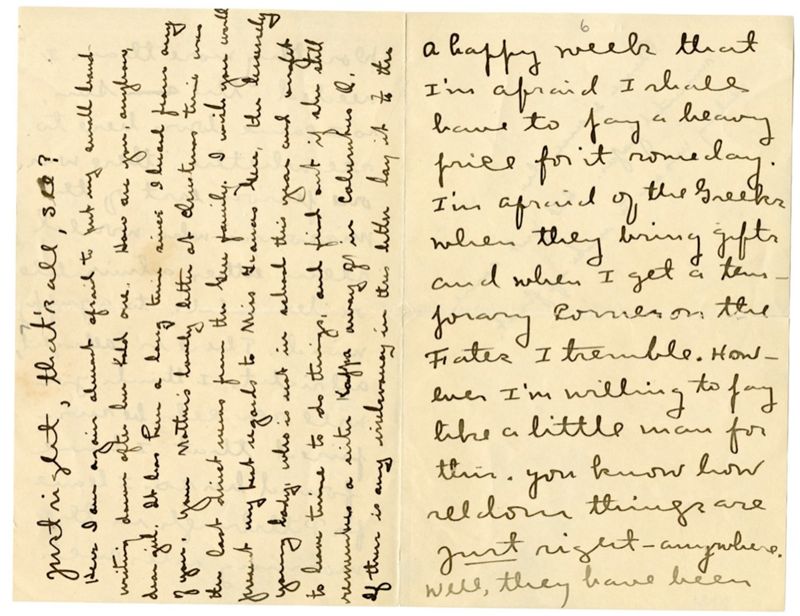 6
a happy week that
I'm afraid I shall
have to pay a heavy
price for it someday.
I'm afraid of the Greeks
when they bring gifts
and when I get a tem-
porary Corner on the
Fates I tremble. How-
ever I'm willing to pay
like a little man for
this. You know how
seldom things are
just right - anywhere.
Well, they have been
just right, that's all, see?
Here I am again almost afraid to put my small hand
writing down after her bold one. How are you anyhow,
dear girl. It has been a long time since I heard from any
of you. Your Mother's lovely letter at Christmas time was
the last direct news from the Gee family. I wish you would
present my best regards to Miss Frances Gee, the leisurely
young lady, who is not in school this year and ought
to have time to do things, and find out if she still
remembers a sister Kappa away off in Columbus O.
If there is any incoherency in this letter lay it to the